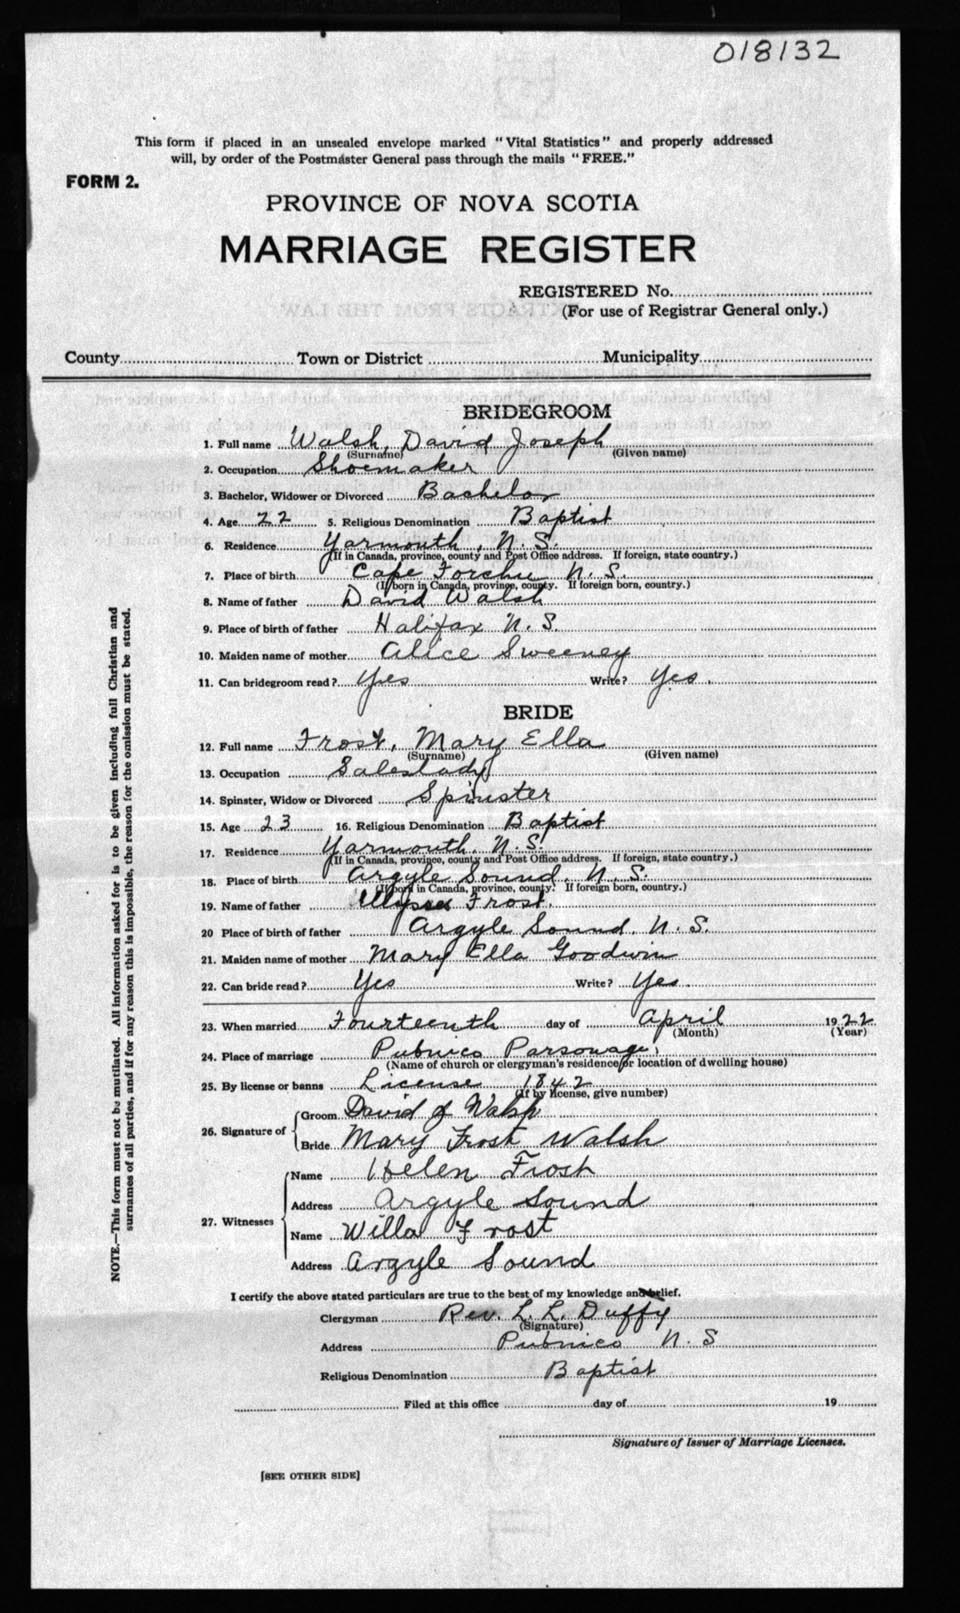 018132
This form if placed in an unsealed envelope marked "Vital Statistics" and properly addressed
will, by order of the Postmaster General pass through the mails "FREE."
FORM 2.
PROVINCE OF NOVA SCOTIA
MARRIAGE REGISTER
REGISTERED No.
(For use of Registrar General only.)
County Town or District Municipality
BRIDEGROOM
1. Full name Walsh, David Joseph
(Surname) (Given name)
2. Occupation Shoemaker
3. Bachelor, Widower or Divorced Bachelor
4. Age 22 5. Religious Denomination Baptist
6. Residence Yarmouth, N.S.
(If in Canada, province, county and Post Office address. If foreign, state country.)
7. Place of birth Cape Forchu N.S.
(If born in Canada, province, county. If foreign born, country.)
8. Name of father David Walsh
9. Place of birth of father Halifax N.S.
10. Maiden name of mother Alice Sweeney
11. Can bridegroom read? Yes Write? Yes.
BRIDE
12. Full name Frost, Mary Ella
(Surname) (Given name)
13. Occupation Saleslady
14. Spinster, Widow or Divorced Spinster
15. Age 23 16. Religious Denomination Baptist
17. Residence Yarmouth, N.S.
(If in Canada, province, county and Post Office address. If foreign, state country.)
18. Place of birth Argyle Sound, N.S.
(If born in Canada, province, county. If foreign born, country.)
19. Name of father Frost.
20 Place of birth of father Argyle Sound, N.S.
21. Maiden name of mother Mary Ella Goodwin
22. Can bride read? Yes Write? Yes.
23. When married Fourteenth day of April 1922
(Month) (Year)
24. Place of marriage Pubnico Parsonage,
(Name of church or clergyman's residence or location of dwelling house)
25. By license or banns License 1842
(If by license, give number)
26. Signature of
Groom David J Walsh
Bride Mary Frost Walsh
27. Witnesses
Name Helen Frost
Address Argyle Sound
Name Willa Frost
Address Argyle Sound
I certify the above stated particulars are true to the best of my knowledge and belief.
Clergyman Rev. L. L. Duffy
(Signature)
Address Pubnico N.S
Religious Denomination Baptist
Filed at this office day of 19
Signature of Issuer of Marriage Licenses.
[SEE OTHER SIDE]
NOTE.—This form must not be mutilated. All information asked for is to be given including full Christian and
surnames of all parties, and if for any reason this is impossible, the reason for the omission must be stated.